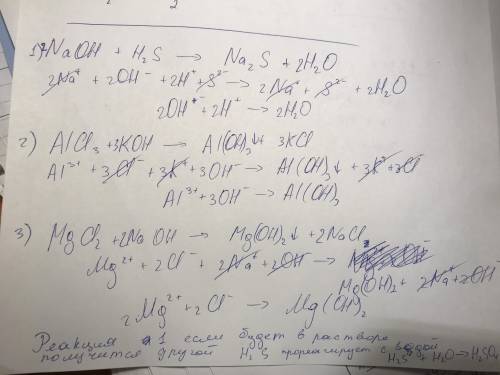 2
1) 2NaOH + H₂S → Na₂S + 2H₂O
2Na⁺ + 2OH⁻ + 2H⁺ + S²⁻ → 2Na⁺ + S²⁻ + 2H₂O
2OH⁻ + 2H⁺ → 2H₂O
2) AlCl₃ + 3KOH → Al(OH)₃↓ + 3KCl
Al³⁺ + 3Cl⁻ + 3K⁺ + 3OH⁻ → Al(OH)₃↓ + 3K⁺ + 3Cl⁻
Al³⁺ + 3OH⁻ → Al(OH)₃
3) MgCl₂ + 2NaOH → Mg(OH)₂↓ + 2NaCl
Mg²⁺ + 2Cl⁻ + 2Na⁺ + 2OH⁻ →
Mg(OH)₂ + 2Na⁺ + 2OH⁻
2Mg²⁺ + 2Cl⁻ → Mg(OH)₂
Реакция 1 если будет в растворе
получится другой H₂S прореагирует с водой
H₂S + H₂O → H₂SO₄